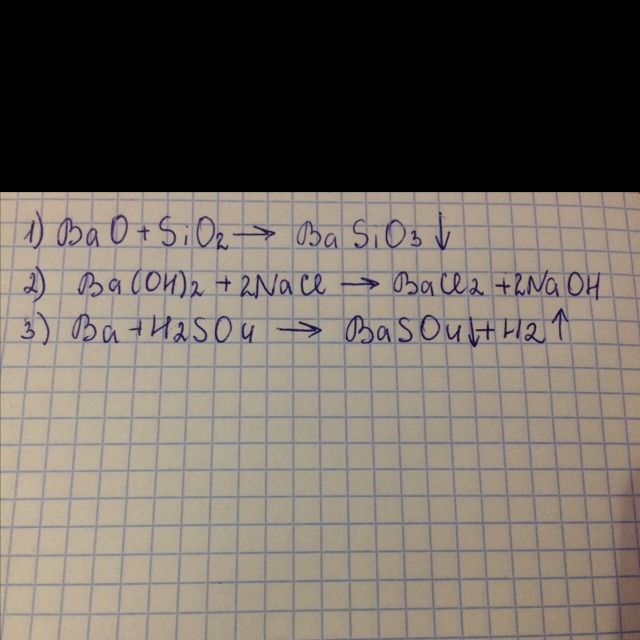 1) BaO + SiO2 → BaSiO3↓
2) Ba(OH)2 + 2NaCl → BaCl2 + 2NaOH
3) Ba + H2SO4 → BaSO4↓ + H2↑